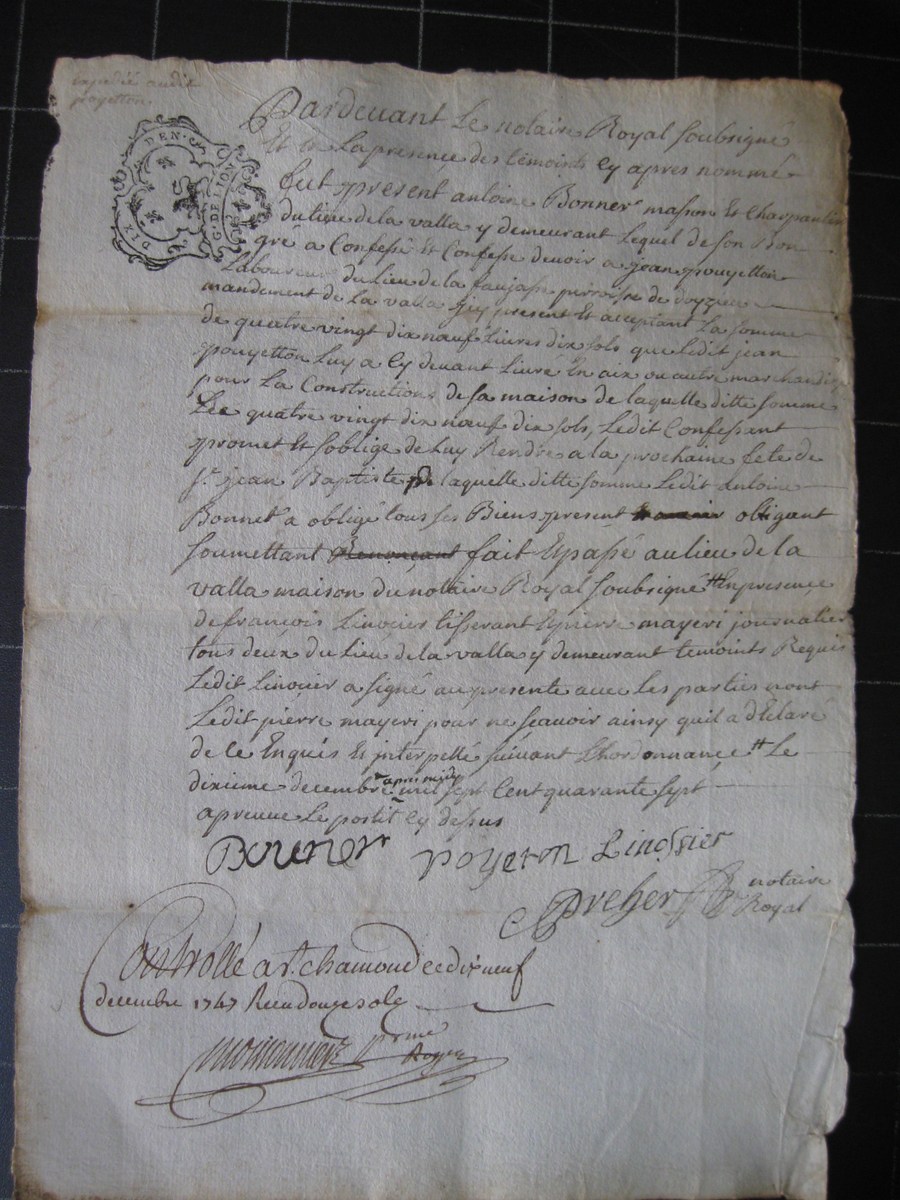 expedié audit
poyetton
DIX DEN. G. DE LION
Pardevant Le notaire Royal soubsigné
Et en La presence des temoints Cy apres nommé
fut present antoine Bonner masson Et Charpantier
du lieu de la valla y demeurant Lequel de son Bon
gré a Confessé Et Confesse devoir a jean pouyetton
Laboureur du Lieu de la faujasse parroisse de doyzieu
mandement de La valla Icy present Et acceptant La somme
de quatre vingt dix nœuf Livres dix sols que Ledit jean
pouyetton Luy a Cy devant Livré En aix ou autre marchandis
pour La Constructions de sa maison de laquelle ditte somme
de quatre vingt dix nœuf dix sols, Ledit Confessant
promet Et soblige de Luy Rendre a la prochaine fete de
St. jean Baptiste laquelle ditte somme Ledit Antoine
Bonnet a obligé tous ses Biens present obligant
soumettant Renonçant fait Et passé au lieu de la
valla maison du notaire Royal soubsigné En presence
de françois Linoçier tisserant Et pierre mayeri journalier
tous deux du Lieu de la valla y demeurant temoints Requis
Ledit Linoçier a signé au presente avec Les parties nont
Ledit pierre mayeri pour ne sçavoir ainsy quil a dEclaré
de ce Enquis Et interpellé suivant Lhordonnance Le
dixieme decembre apres midy mil sept Cent quarante sept
apreuve Le postit Cy dessus
Bouner poyeton Linossier
notaire
Royal
Controllé a St. chamond ce dix neuf
decembre 1747 Recu douze sols